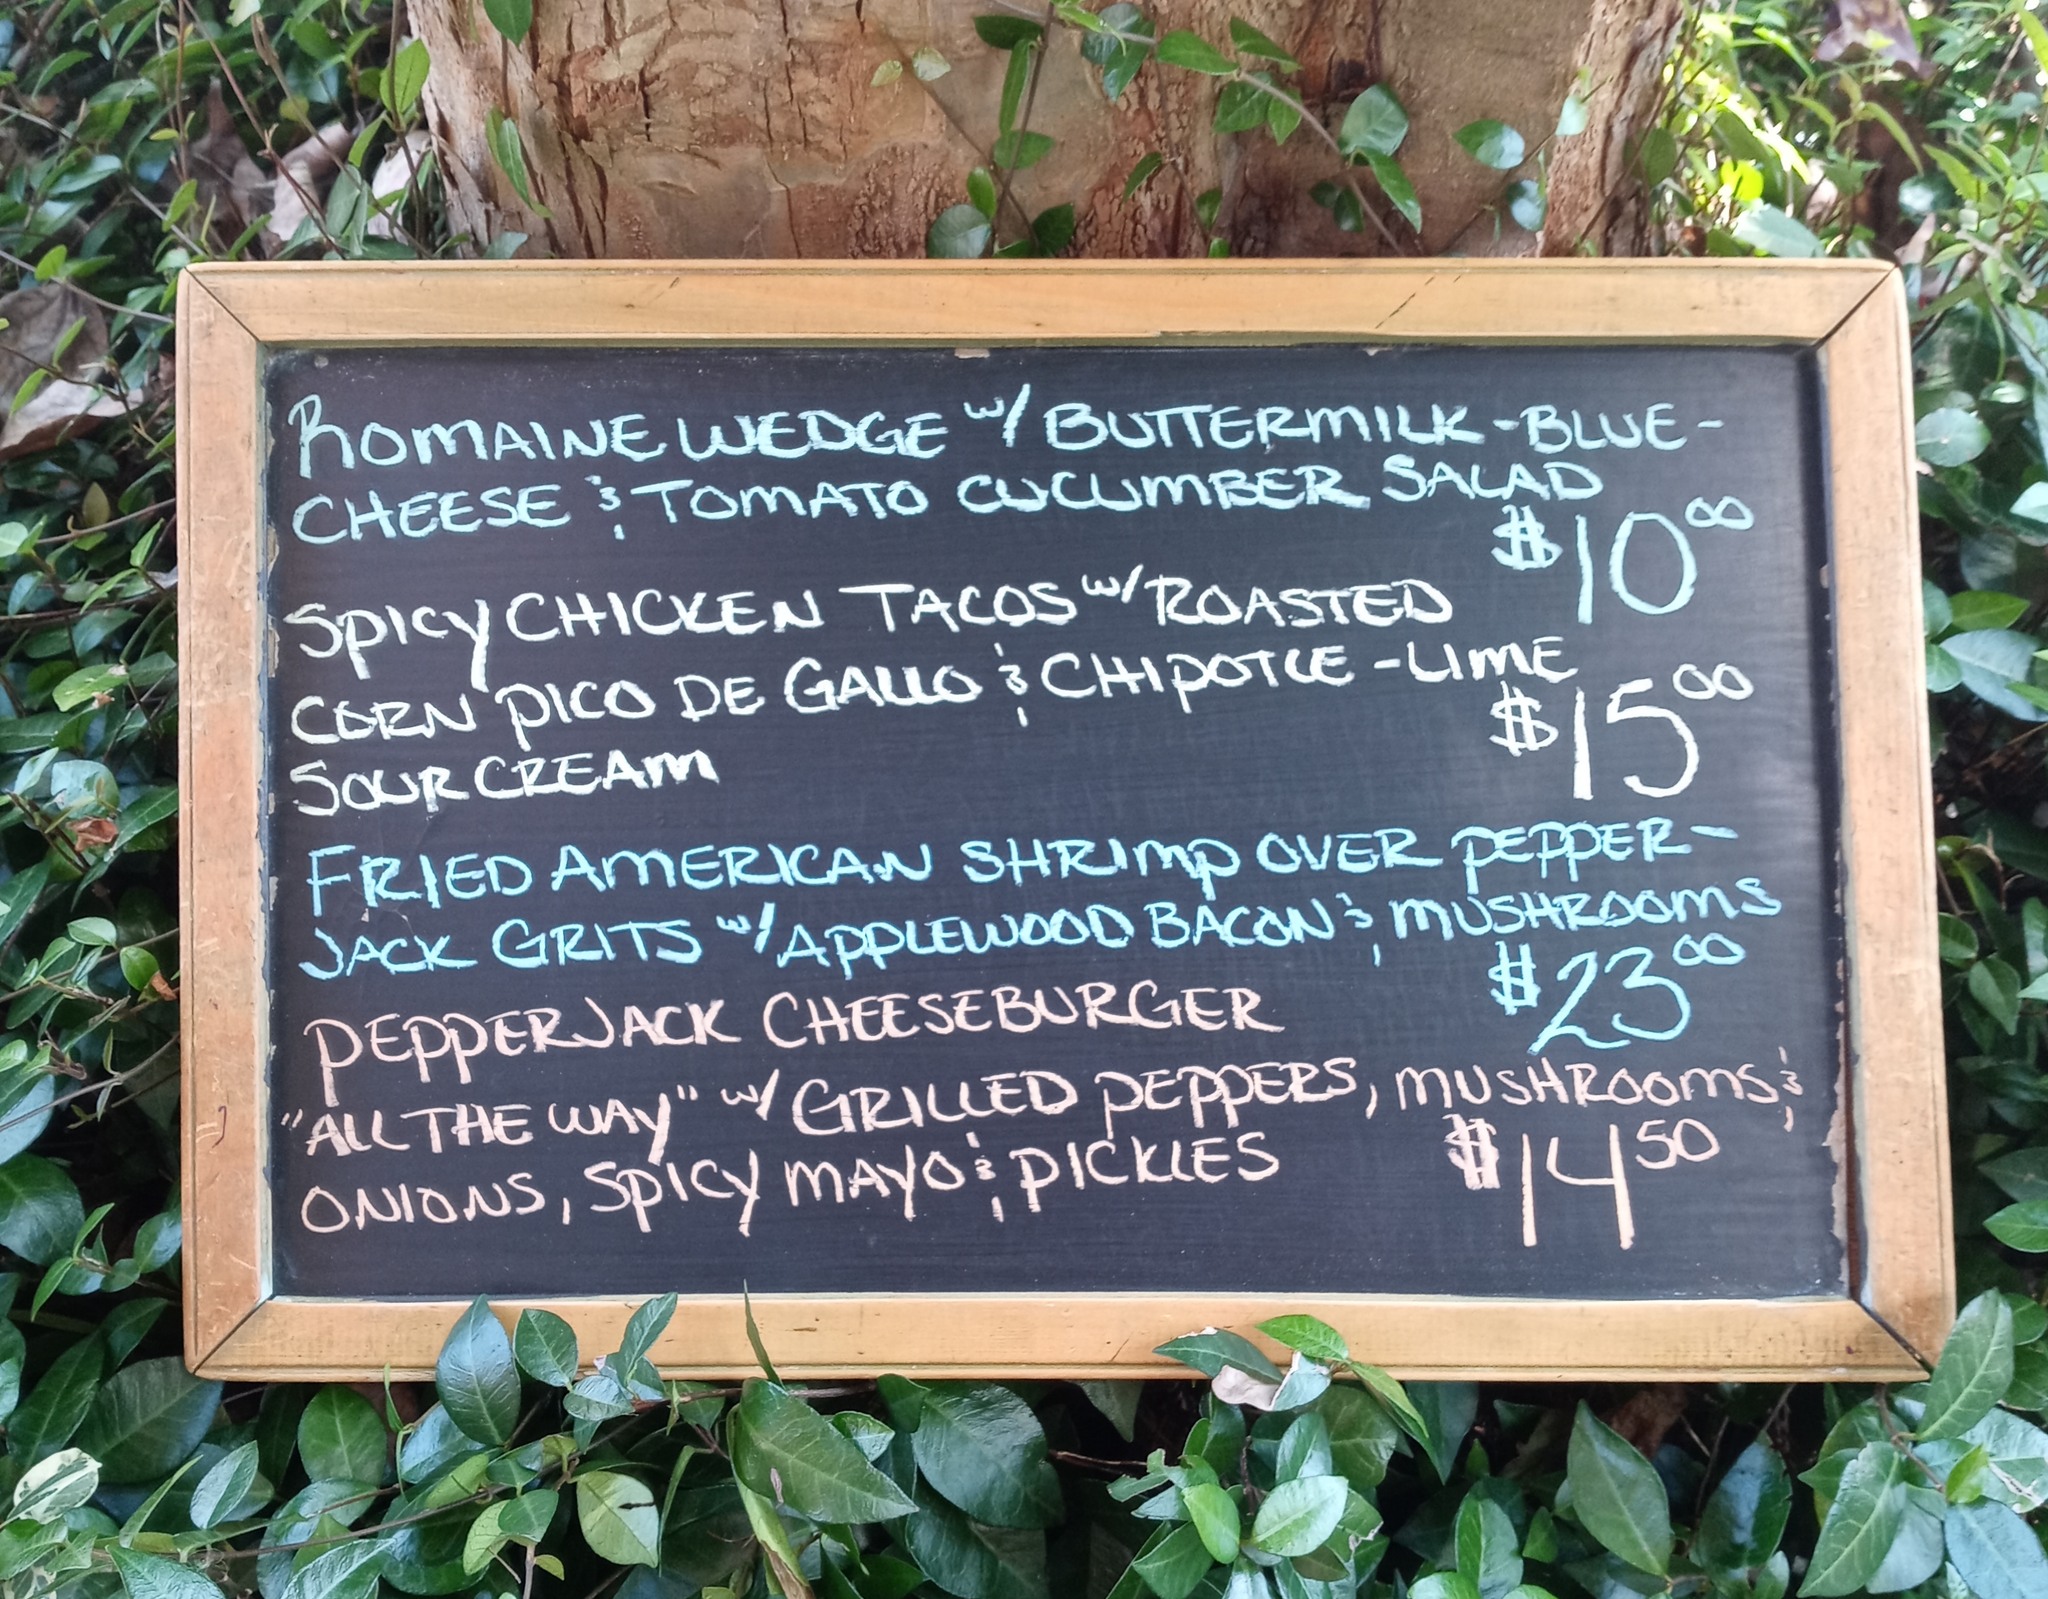 ROMAINE WEDGE w/ BUTTERMILK-BLUE-
CHEESE & TOMATO CUCUMBER SALAD
$10.00
SPICY CHICKEN TACOS w/ ROASTED
CORN PICO DE GALLO & CHIPOTLE-LIME
SOUR CREAM
$15.00
FRIED AMERICAN SHRIMP OVER PEPPER-
JACK GRITS w/ APPLEWOOD BACON & MUSHROOMS
$23.00
PEPPERJACK CHEESEBURGER
"ALL THE WAY" w/ GRILLED PEPPERS, MUSHROOMS &
ONIONS, SPICY MAYO & PICKLES
$14.50